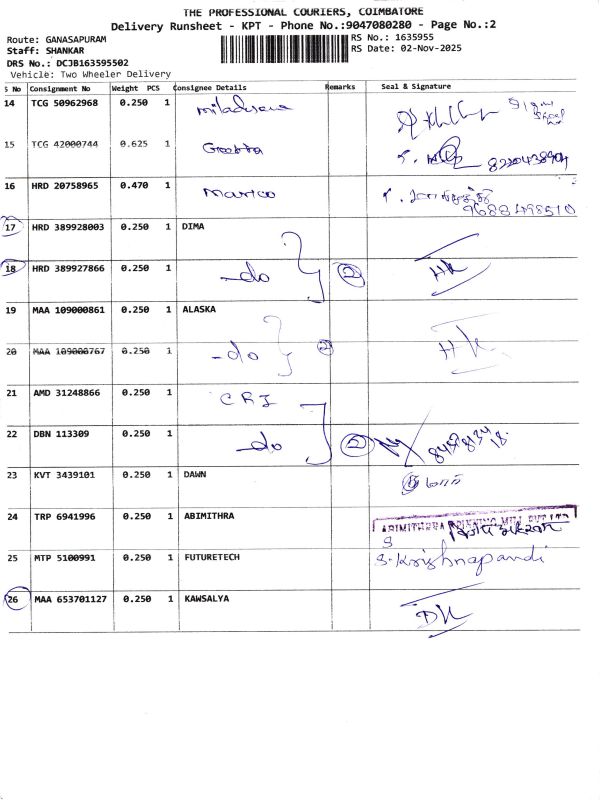 THE PROFESSIONAL COURIERS, COIMBATORE
Delivery Runsheet - KPT - Phone No.:9047080280 - Page No.:2
Route: GANASAPURAM
RS No.: 1635955
Staff: SHANKAR
RS Date: 02-Nov-2025
DRS No.: DCJB163595502
Vehicle: Two Wheeler Delivery
S No Consignment No Weight PCS Consignee Details Remarks Seal & Signature
14 TCG 50962968 0.250 1
15 TCG 42000744 0.625 1 Geetha 8220438904
16 HRD 20758965 0.470 1 Marico 9688498510
17 HRD 389928003 0.250 1 DIMA
18 HRD 389927866 0.250 1 -do 2 HK
19 MAA 109000861 0.250 1 ALASKA
20 MAA 109000767 0.250 1 -do 2 HK
21 AMD 31248866 0.250 1 CRI
22 DBN 113309 0.250 1 -do
23 KVT 3439101 0.250 1 DAWN
24 TRP 6941996 0.250 1 ABIMITHRA ABIMITHRA SPINNING MILL PVT LTD
25 MTP 5100991 0.250 1 FUTURETECH S. Krishnapandi
26 MAA 653701127 0.250 1 KAWSALYA DK